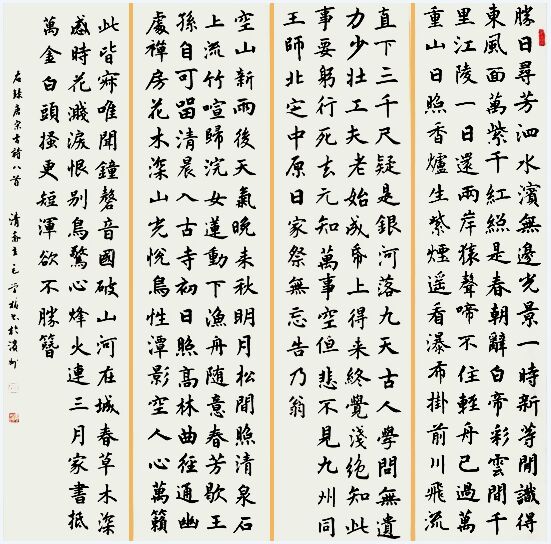 勝日尋芳泗水濱無邊光景一時新等閒識得
東風面萬紫千紅總是春朝辭白帝彩雲間千
里江陵一日還兩岸猿聲啼不住輕舟已過萬
重山日照香爐生紫煙遙看瀑布掛前川飛流
直下三千尺疑是銀河落九天古人學問無遺
力少壯工夫老始成帋上得來終覺淺絕知此
事要躬行死去元知萬事空但悲不見九州同
王師北定中原日家祭無忘告乃翁
空山新雨後天氣晚来秋明月松間照清泉石
上流竹喧歸浣女蓮動下漁舟随意春芳歇王
孫自可留清晨入古寺初日照高林曲徑通幽
處禪房花木深山光悅鳥性潭影空人心萬籟
此皆寂唯聞鐘磬音國破山河在城春草木深
感時花濺淚恨別鳥驚心烽火連三月家書抵
萬金白頭搔更短渾欲不勝簪
右錄唐宋古詩八首